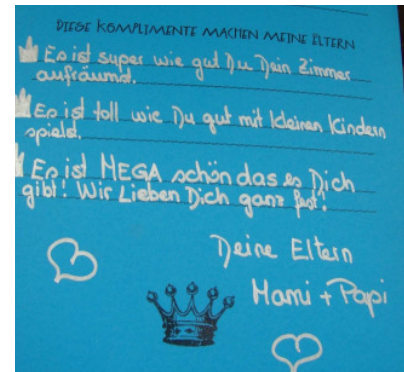 DIESE KOMPLIMENTE MACHEN MEINE ELTERN
Es ist super wie gut Du Dein Zimmer
aufräumst.
Es ist toll wie Du gut mit kleinen Kindern
spielst.
Es ist MEGA schön das es Dich
gibt! Wir Lieben Dich ganz fest!
Deine Eltern
Mami + Papi